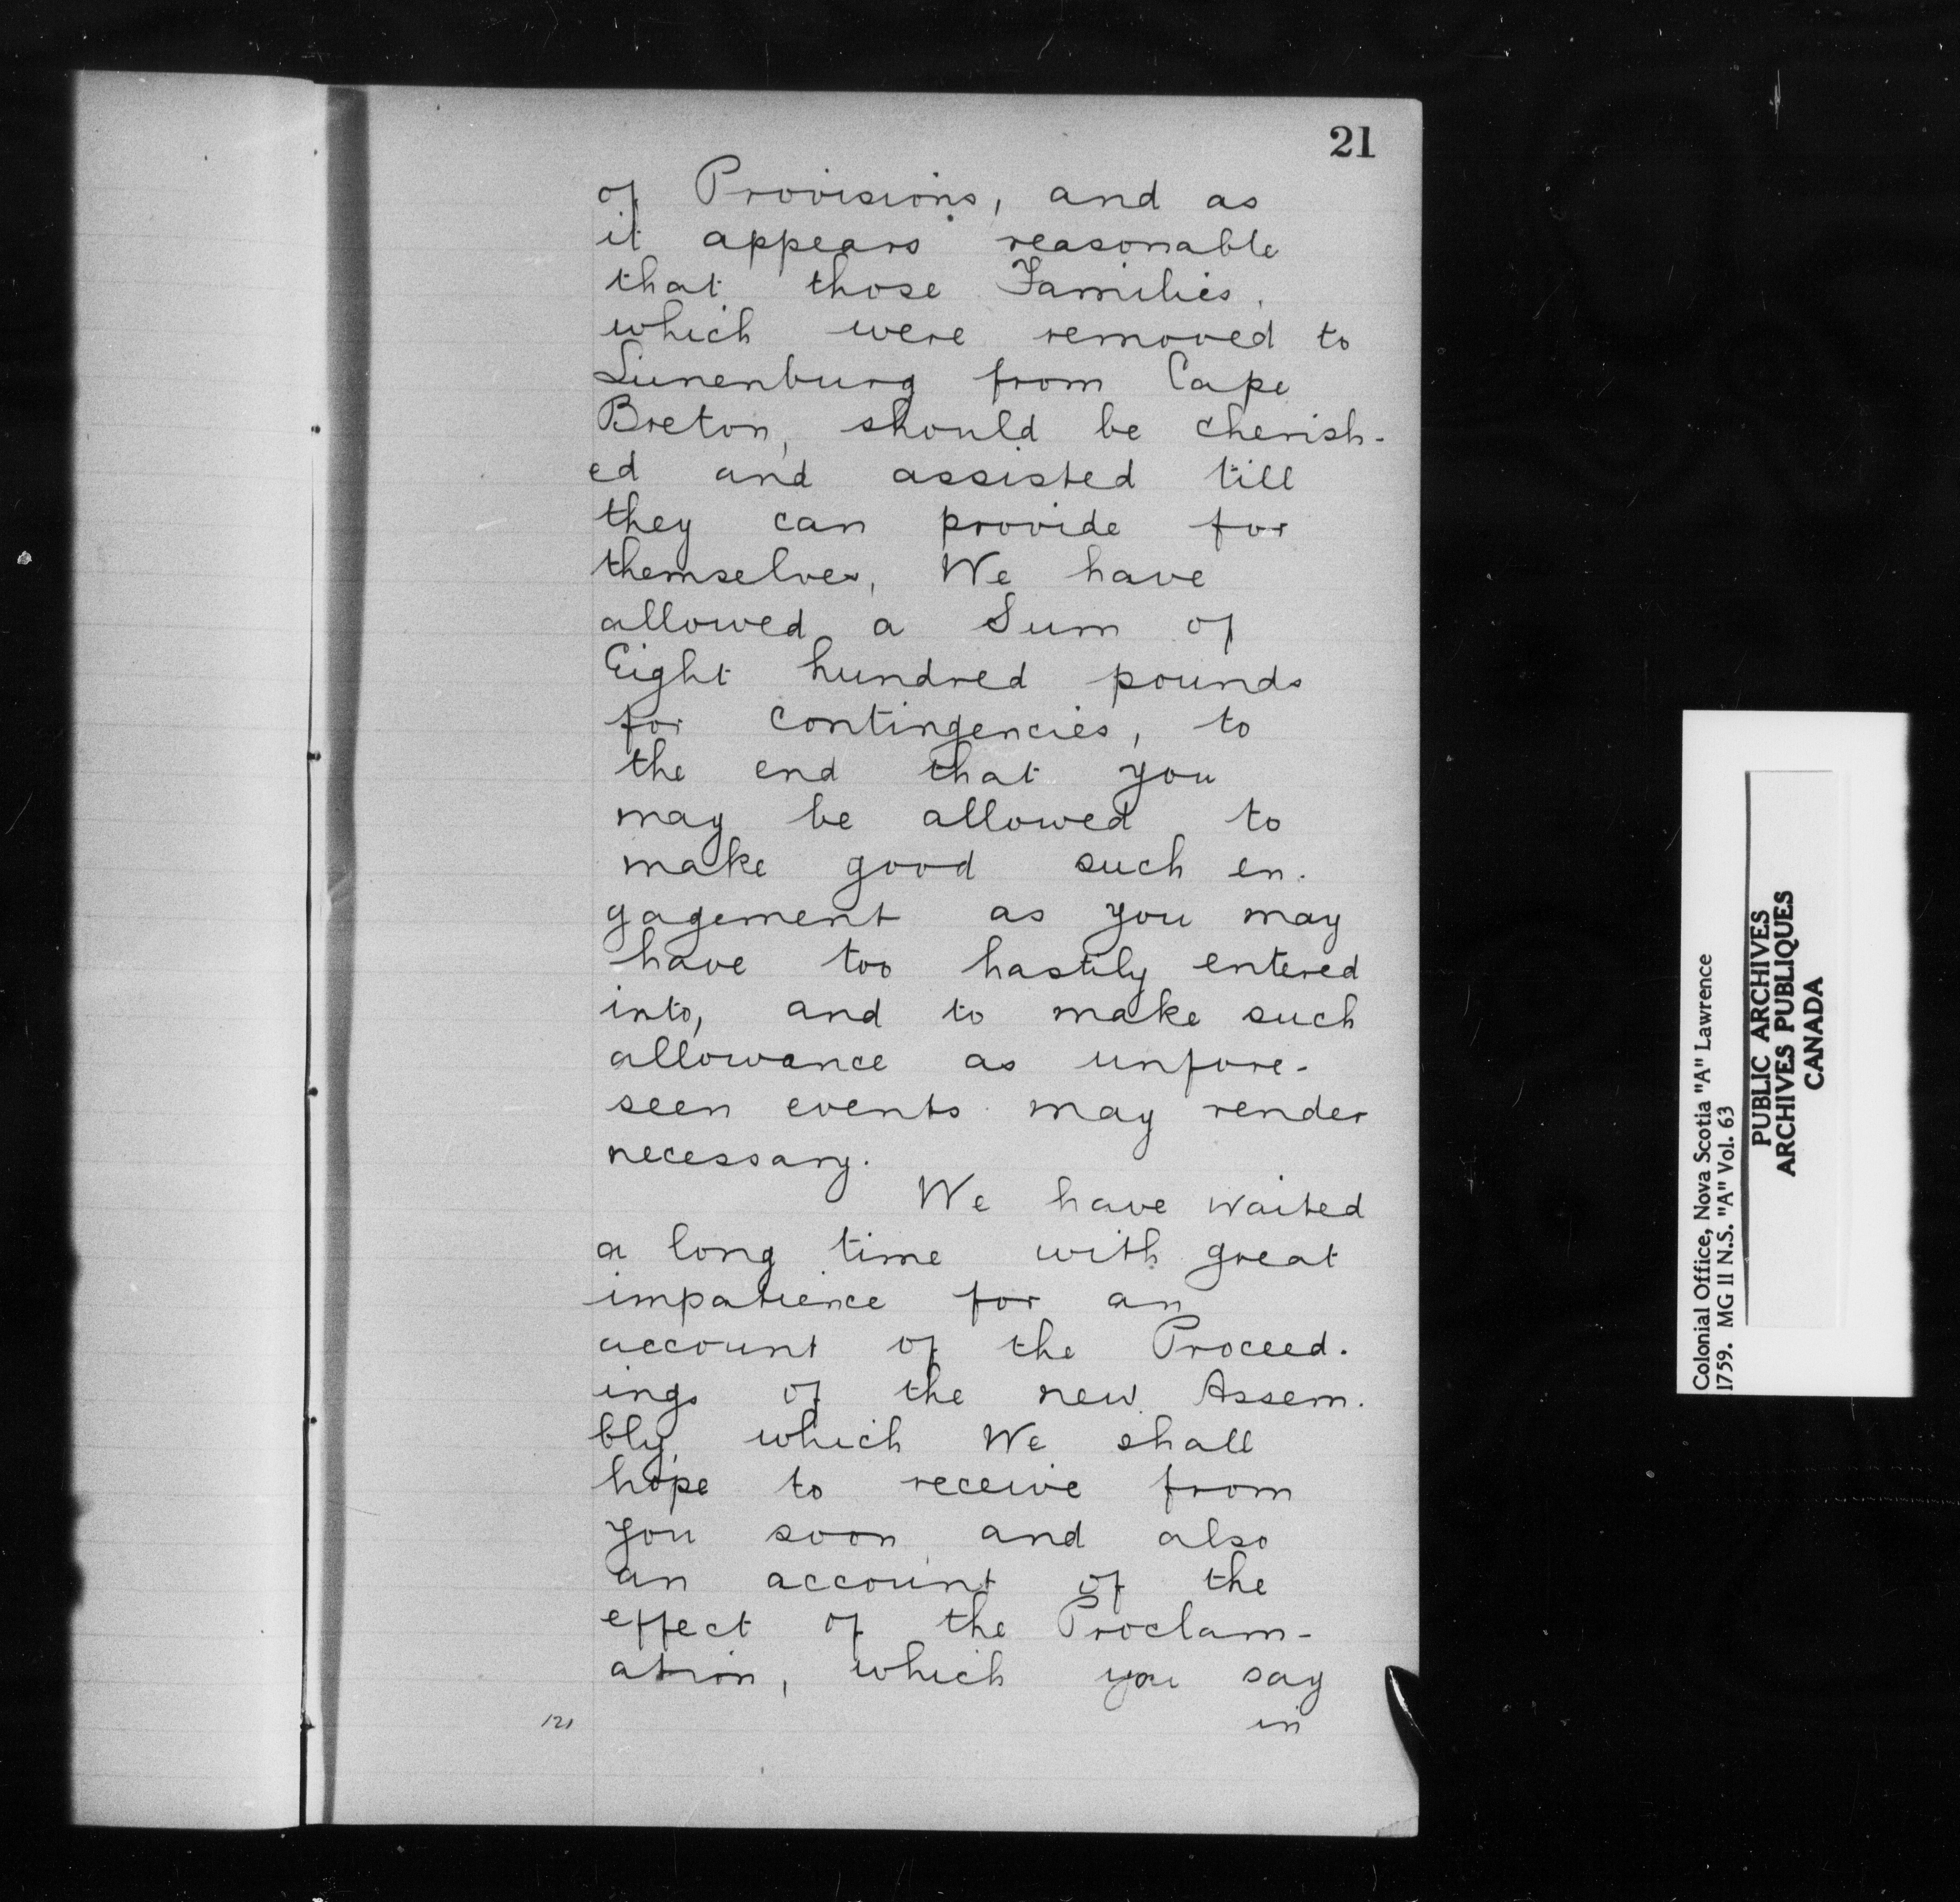 21
of Provisions, and as
it appears reasonable
that those Families,
which were removed to
Lunenburg from Cape
Breton, should be cherish-
ed and assisted till
they can provide for
themselves, We have
allowed a Sum of
Eight hundred pounds
for contingencies, to
the end that you
may be allowed to
make good such en-
gagement as you may
have too hastily entered
into, and to make such
allowance as unfore-
seen events may render
necessary.
We have waited
a long time with great
impatience for an
account of the Proceed-
ings of the new Assem-
bly, which We shall
hope to receive from
you soon and also
an account of the
effect of the Proclam-
ation, which you say
in
121
Colonial Office, Nova Scotia "A" Lawrence
1759. MG II N.S. "A" Vol. 63
PUBLIC ARCHIVES
ARCHIVES PUBLIQUES
CANADA